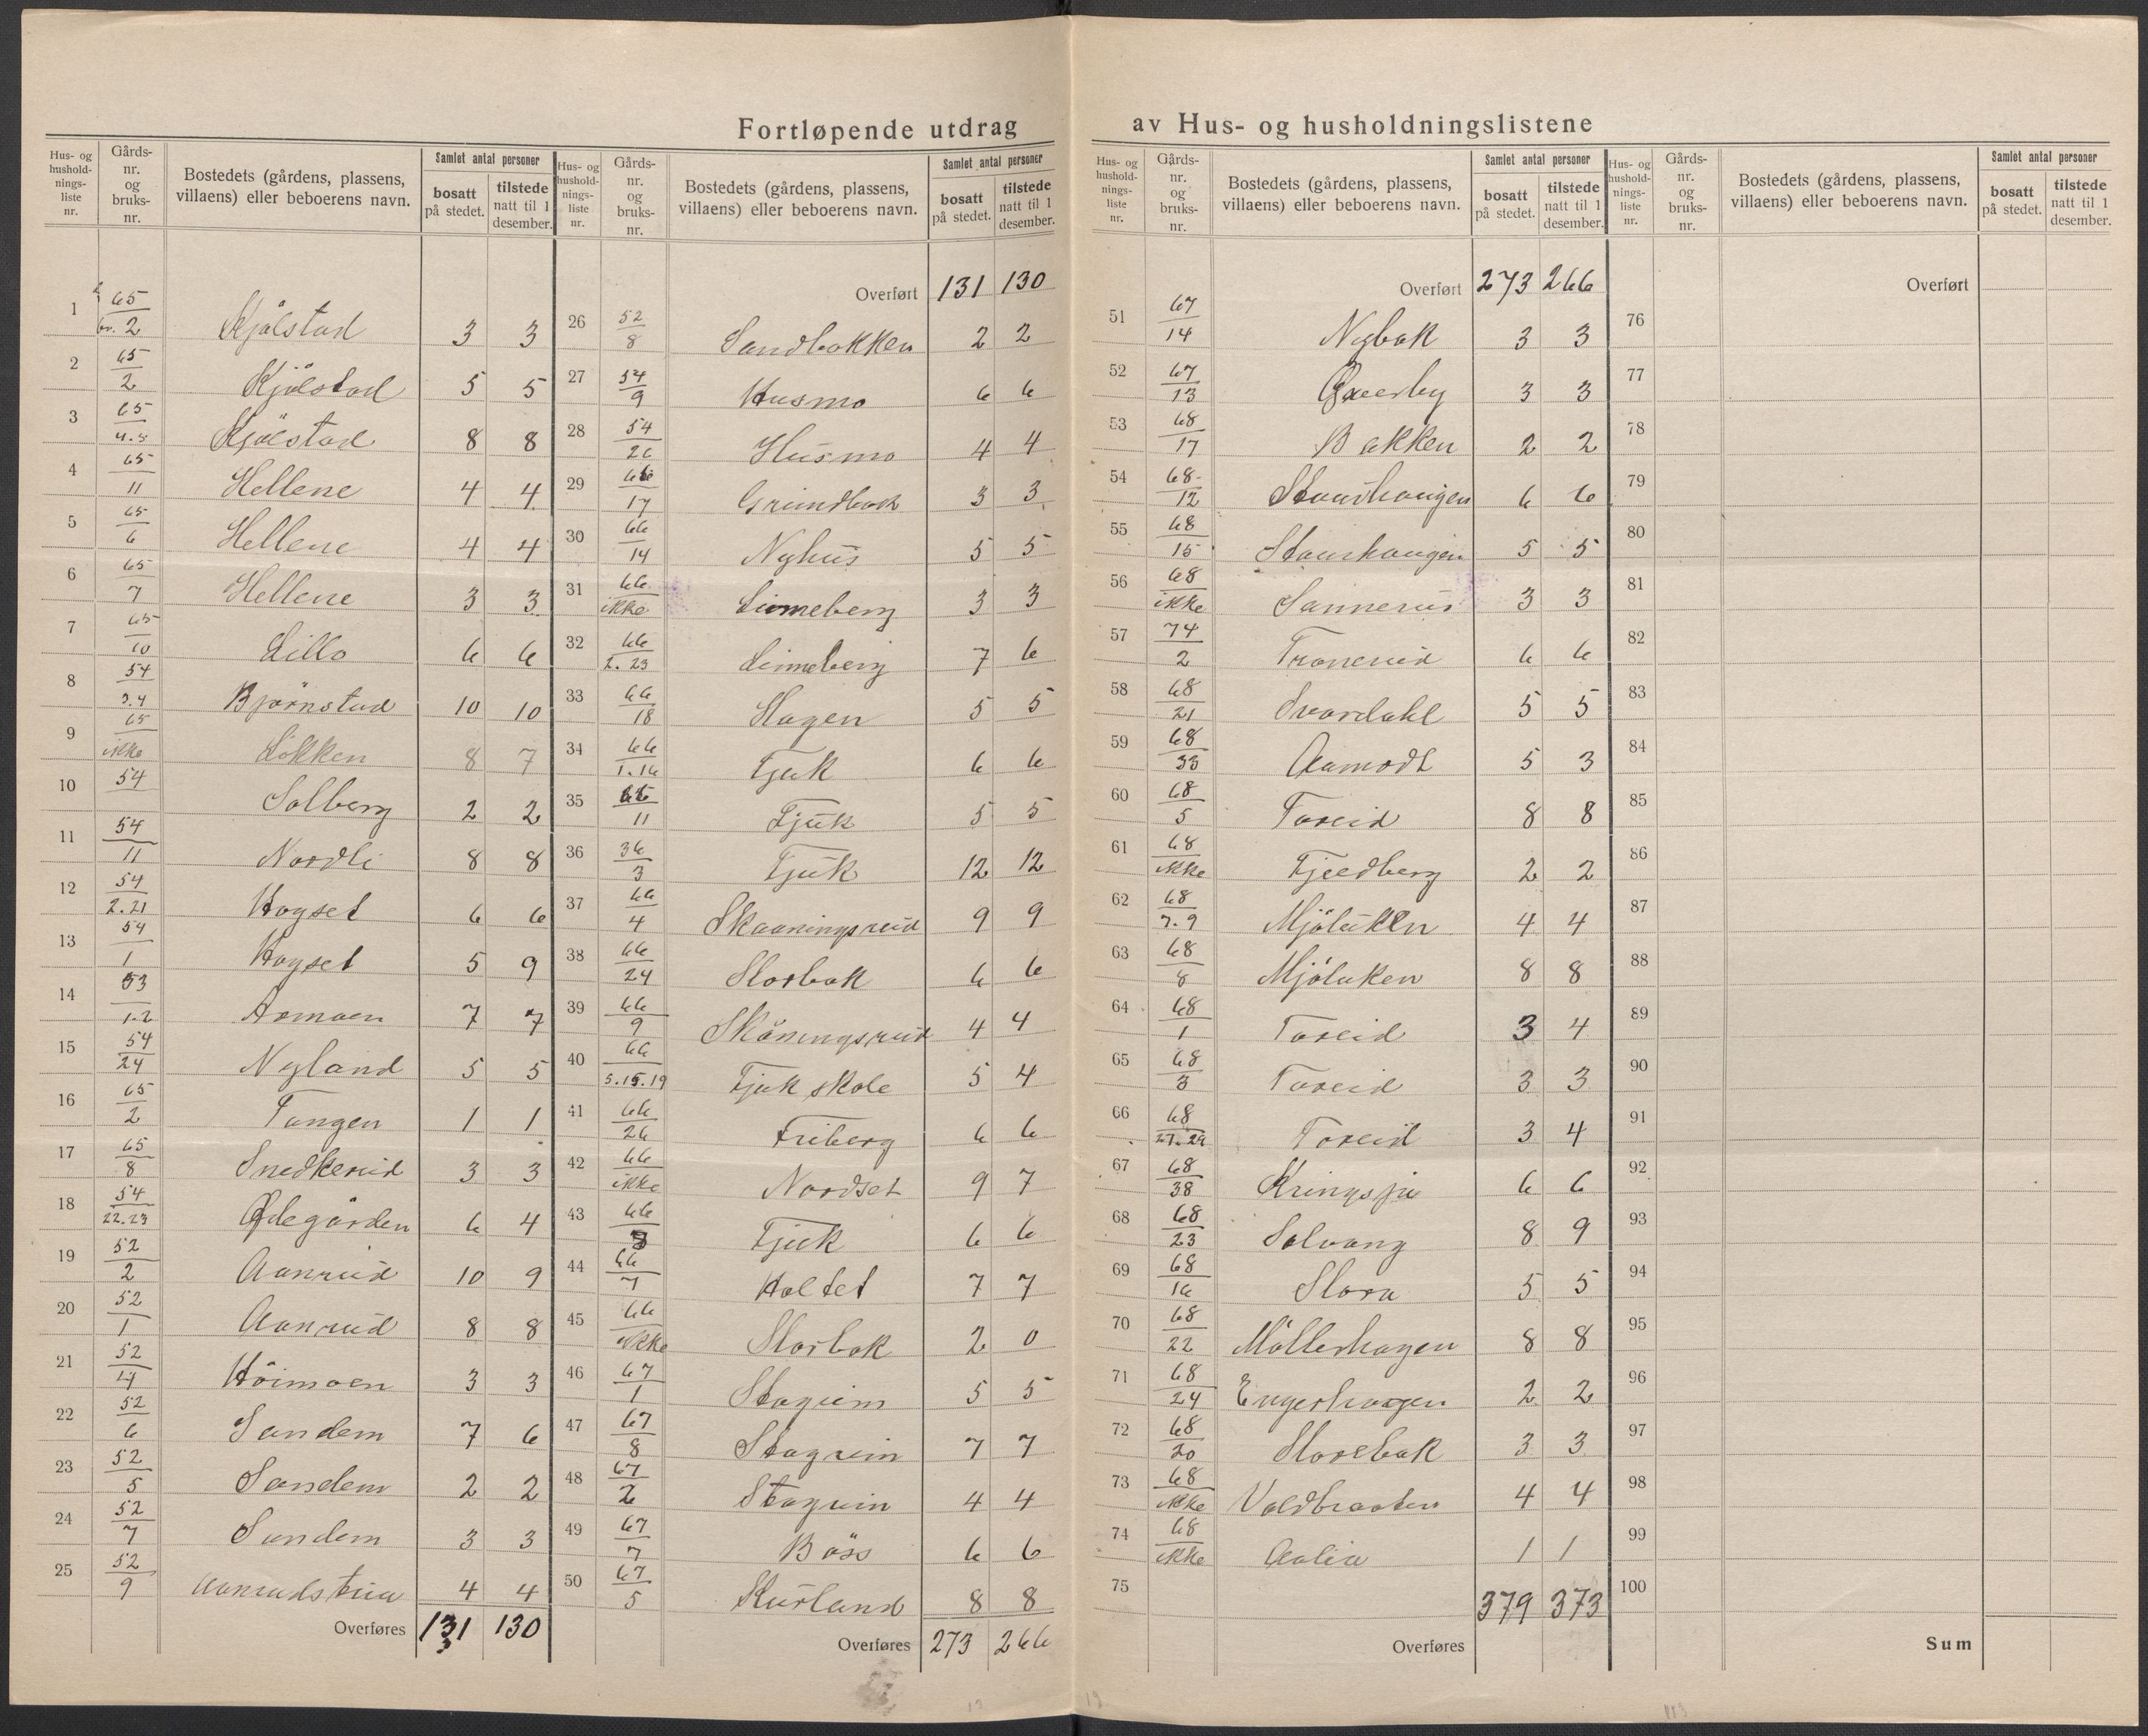 Fortløpende utdrag av Hus- og husholdningslistene
Hus- og husholdningsliste nr. | Gårdsnr. og bruksnr. | Bostedets (gårdens, plassens, villaens) eller beboerens navn. | Samlet antal personer bosatt på stedet. | tilstede natt til 1 desember.
1 65/br. 2 Kjølstad 3 3
2 65/2 Kjölstad 5 5
3 65/4.5 Kjölstad 8 8
4 65/11 Hellene 4 4
5 65/6 Hellene 4 4
6 65/7 Hellene 3 3
7 65/10 Lillo 6 6
8 54/3.4 Bjørnstad 10 10
9 65/ikke Løkken 8 7
10 54 Solberg 2 2
11 54/11 Nordli 8 8
12 54/2.21 Hogset 6 6
13 54/1 Hogset 5 9
14 53/1.2 Aomoen 7 7
15 54/24 Nyland 5 5
16 65/2 Tangen 1 1
17 65/8 Snedkerud 3 3
18 54/22.23 Ødegården 6 4
19 52/2 Aanrud 10 9
20 52/1 Aanrud 8 8
21 52/4 Höimoen 3 3
22 52/6 Sandem 7 6
23 52/5 Sandem 2 2
24 52/7 Sandem 3 3
25 52/9 Aanrudstua 4 4
Overføres 131 130
3
Hus- og husholdningsliste nr. | Gårdsnr. og bruksnr. | Bostedets (gårdens, plassens, villaens) eller beboerens navn. | Samlet antal personer bosatt på stedet. | tilstede natt til 1 desember.
Overført 131 130
26 52/8 Sandbakken 2 2
27 54/9 Husmo 6 6
28 54/26 Husmo 4 4
29 66/17 Grundbak 3 3
30 66/14 Nyhus 5 5
31 66/ikke Linneberg 3 3
32 66/2.23 Linneberg 7 6
33 66/18 Hagen 5 5
34 66/1.16 Tjuk 6 6
35 66/11 Tjuk 5 5
36 36/3 Tjuk 12 12
37 66/4 Skaaningsrud 9 9
38 66/24 Storbak 6 6
39 66/9 Skåningsrud 4 4
40 66/5.15.19 Tjuk skole 5 4
41 66/26 Friberg 6 6
42 66/ikke Nordset 9 7
43 66/3 Tjuk 6 6
44 66/7 Holtet 7 7
45 66/ikke Storbak 2 0
46 67/1 Stagrim 5 5
47 67/8 Stagrim 7 7
48 67/2 Stagrim 4 4
49 67/7 Böss 6 6
50 67/5 Kurland 8 8
Overføres 273 266
Hus- og husholdningsliste nr. | Gårdsnr. og bruksnr. | Bostedets (gårdens, plassens, villaens) eller beboerens navn. | Samlet antal personer bosatt på stedet. | tilstede natt til 1 desember.
Overført 273 266
51 67/14 Nybak 3 3
52 67/13 3 3
53 68/17 Bakken 2 2
54 68/12 Staurhaugen 6 6
55 68/15 Staurhaugen 5 5
56 68/ikke Sannerud 3 3
57 74/2 Tronerud 6 6
58 68/21 Svordahl 5 5
59 68/33 Aamodt 5 3
60 68/5 Toreid 8 8
61 68/ikke Tjeedberg 2 2
62 68/7.9 Mjölaken 4 4
63 68/8 Mjölaken 8 8
64 68/1 Toreid 3 4
65 68/3 Toreid 3 3
66 68/27.29 Toreid 3 4
67 68/38 Kringsjå 6 6
68 68/23 Solvang 8 9
69 68/16 Stora 5 5
70 68/22 Möllerhagen 8 8
71 68/24 Engerhagen 2 2
72 68/20 Storebak 3 3
73 68/ikke Voldbraaten 4 4
74 68/ikke Aalia 1 1
75 379 373
Overføres
Hus- og husholdningsliste nr. | Gårdsnr. og bruksnr. | Bostedets (gårdens, plassens, villaens) eller beboerens navn. | Samlet antal personer bosatt på stedet. | tilstede natt til 1 desember.
Overført
76
77
78
79
80
81
82
83
84
85
86
87
88
89
90
91
92
93
94
95
96
97
98
99
100
Sum